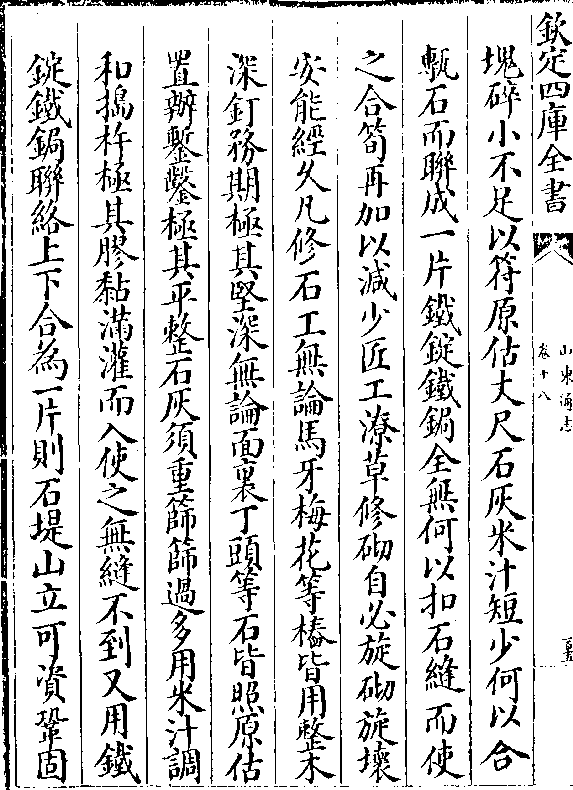 欽定四庫全書
山東通志
卷十八
塊碎小不足以符原估丈尺石灰米汁短少何以合
甎石而聯成一片鐵錠鐵鍋全無何以扣石縫而使
之合筍再加以減少匠工潦草修砌自必旋砌旋壞
安能經久凡修石工無論馬牙梅花等樁皆用整木
深釘務期極其堅深無論面裏丁頭等石皆照原估
置辦鏨鑿極其平整石灰須重篩篩過多用米汁調
和搗杵極其膠黏滿灌而入使之無縫不到又用鐵
錠鐵鍋聯絡上下合為一片則石堤山立可資鞏固